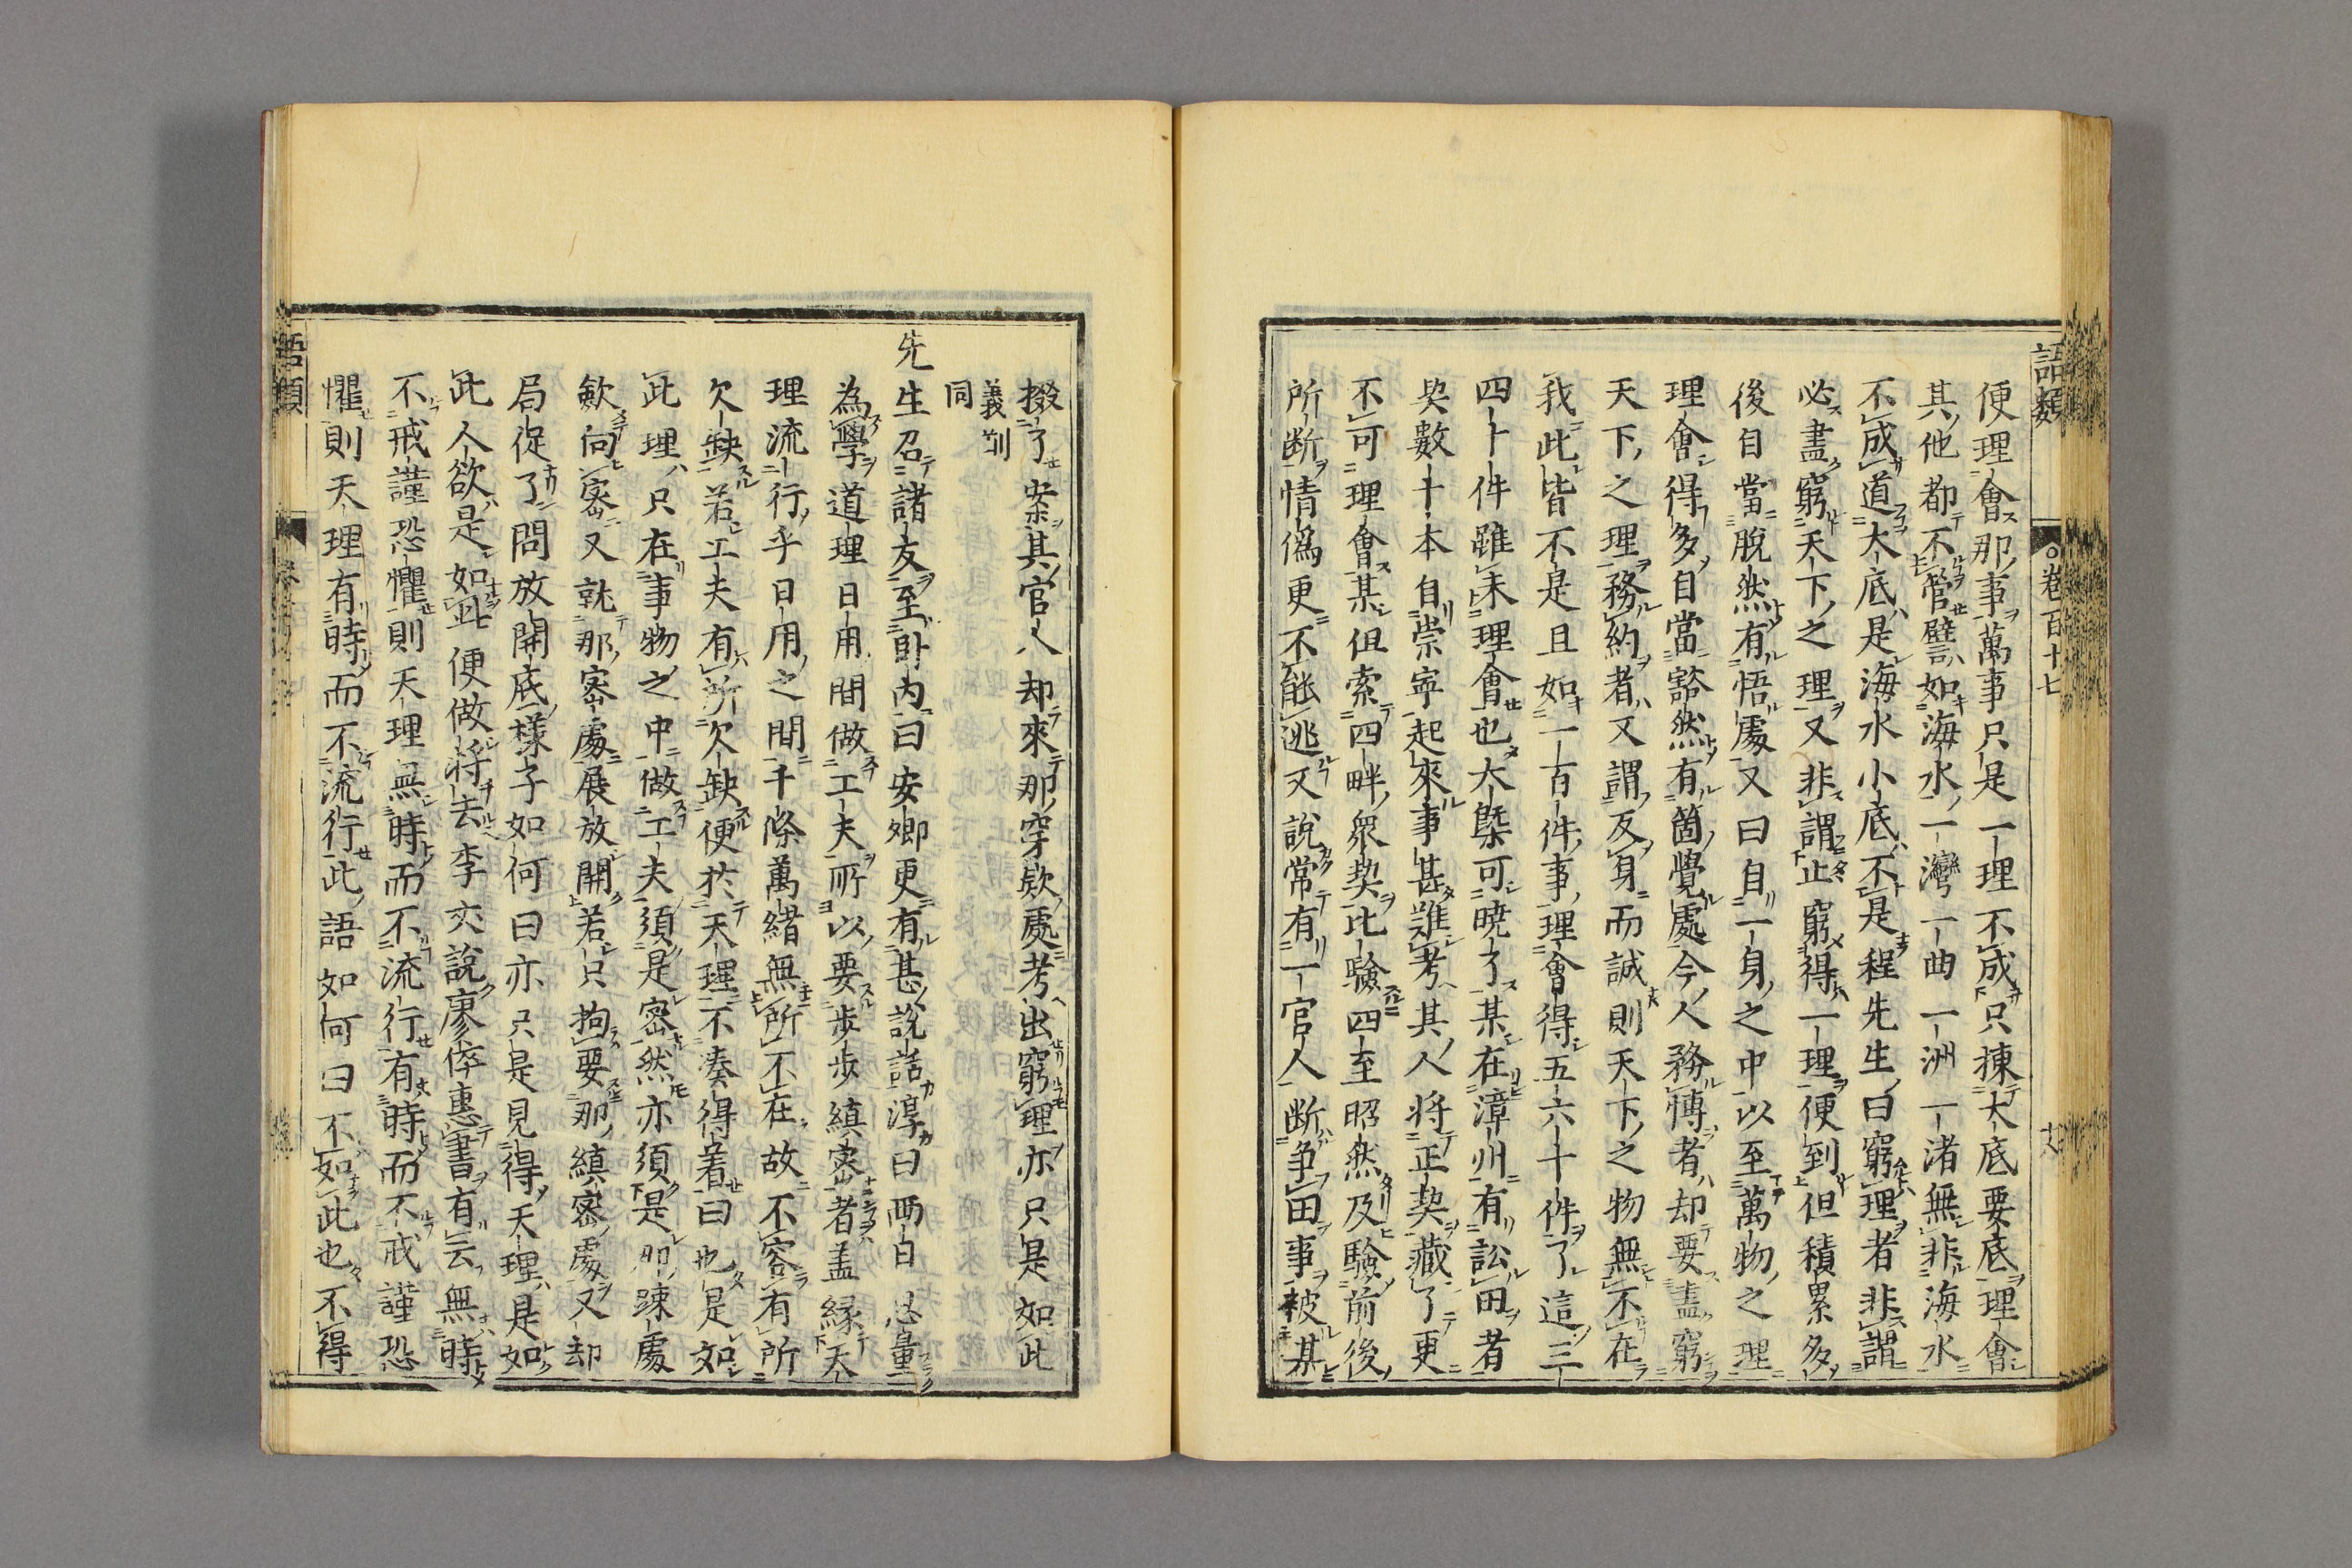 語類
卷百十七
便理會那事萬事只是一理不成只揀大底要底理會
其他都不管譬如海水一灣一曲一洲一渚無非海水
不成道大底是海水小底不是程先生曰窮理者非謂
必盡窮天下之理又非謂止窮得一理便到但積累多
後自當脫然有悟處又曰自一身之中以至萬物之理
理會得多自當豁然有箇覺處今人務博者却要盡窮
天下之理務約者又謂反身而誠則天下之物無不在
我此皆不是且如一百件事理會得五六十件了這三
四十件雖未理會也大槩可曉了某在漳州有訟田者
契數十本自崇寧起來事甚難考其人將正契藏了更
不可理會某但索四畔衆契比驗四至昭然及驗前後
所斷情僞更不能逃又說常有一官人斷争田事被某
掇了案其官人却來那穿欵處考出窮理亦只是如此
義剛
同
先生召諸友至卧内曰安卿更有甚說話淳曰兩日思量
為學道理日用間做工夫所以要步步縝密者盖緣天
理流行乎日用之間千條萬緒無所不在故不容有所
欠缺若工夫有所欠缺便於天理不湊得着曰也是如
此理只在事物之中做工夫須是密然亦須是那踈處
歛向密又就那密處展放開若只拘要那縝密處又却
局促了問放開底樣子如何曰亦只是見得天理是如
此人欲是如此便做將去李丈說廖倅惠書有云無時
不戒謹恐懼則天理無時而不流行有時而不戒謹恐
懼則天理有時而不流行此語如何曰不如此也不得
語類